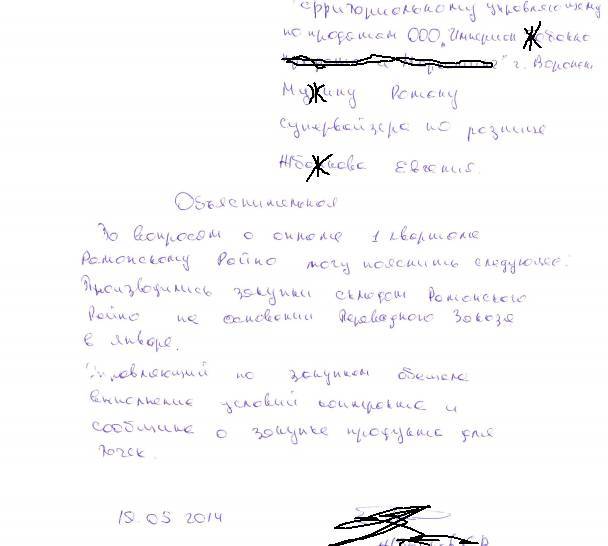 Территориальному управляющему
по продажам ООО „Империал
" г. Воронеж
Роману
Супервайзера по рознице
Евгения.
Объяснительная
По вопросам о оплате 1 квартала
Рамонскому Райпо могу пояснить следующее:
Производились закупки складом Рамонского
Райпо на основании Заказа
в январе.
Управляющий по закупкам обещала
выполнение условий контракта и
сообщила о закупке продукта для
точек.
19.05 2014